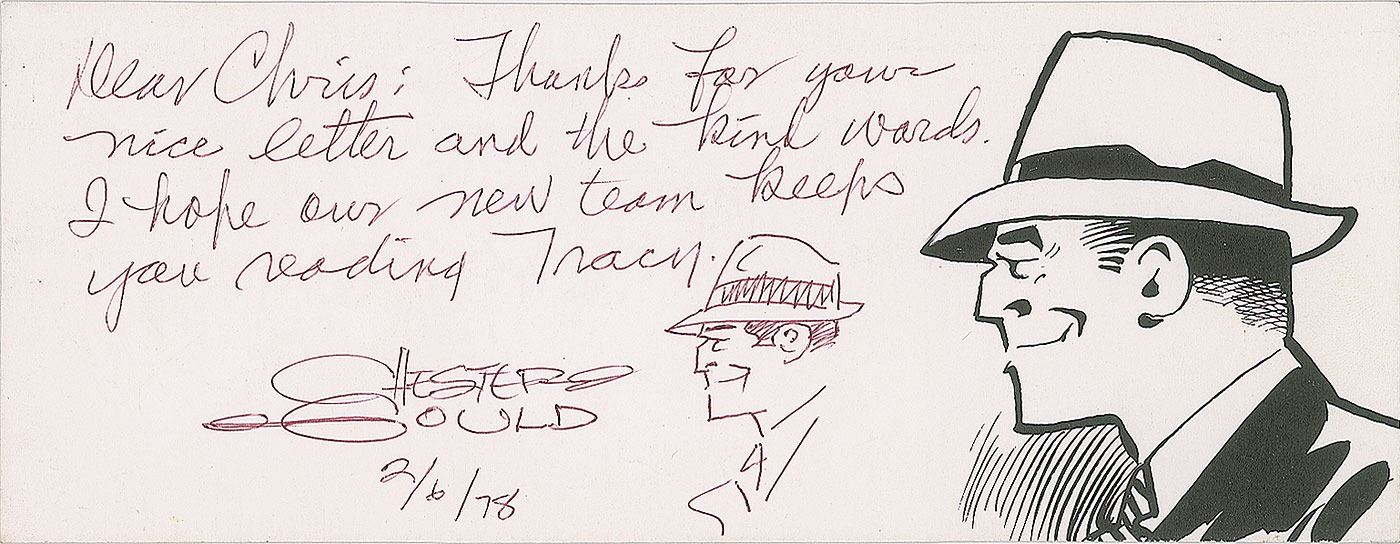 Dear Chris: Thanks for your
nice letter and the kind words.
I hope our new team keeps
you reading Tracy.
CHESTER
GOULD
2/6/78